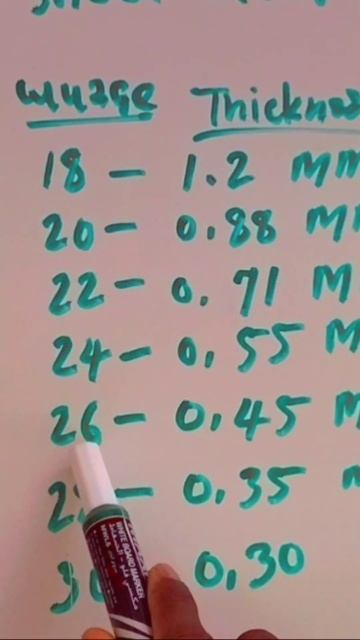 Thickne
18 - 1.2 MM
20 - 0.88 M
22 - 0.71 M
24 - 0.55 M
26 - 0.45 M
0.35
0.30
WHITE BOARD MARKER